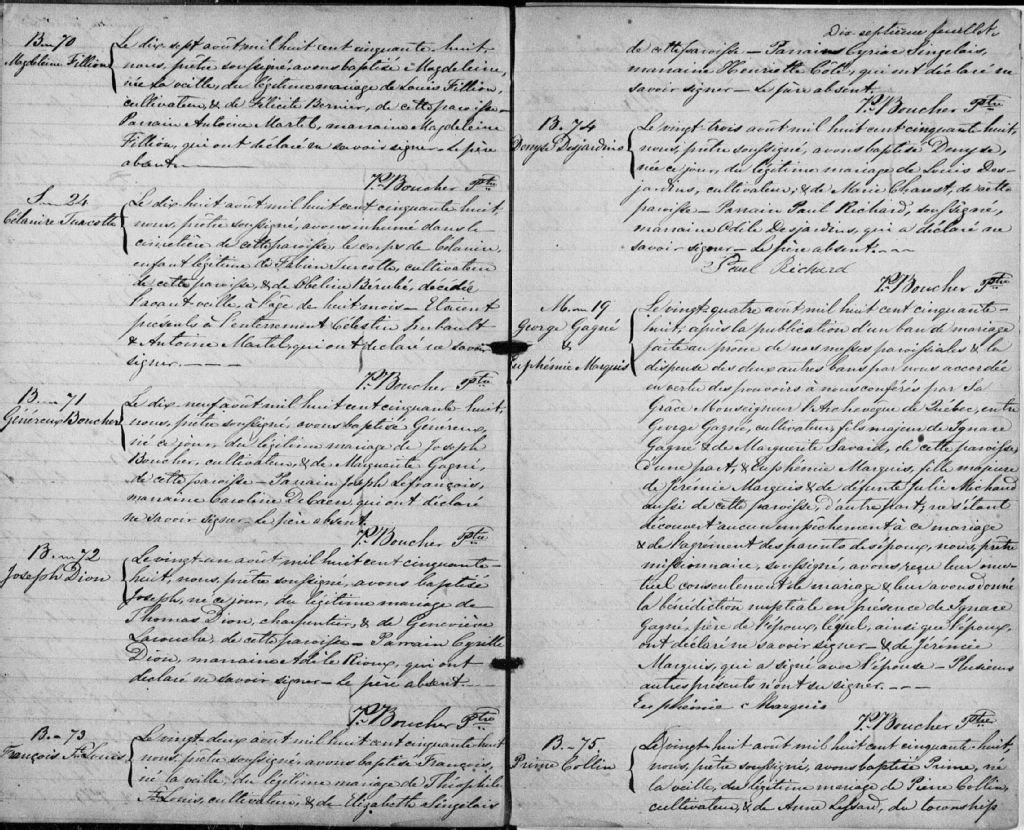 B.-70
Magdeleine Fillion
Le dix sept août mil huit cent cinquante-huit,
nous, prêtre soussigné, avons baptisé Magdeleine,
née la veille, du légitime mariage de Louis Fillion,
cultivateur, & de Félicité Bernier, de cette paroisse-
Parrain Antoine Martel, marraine Magdeleine
Fillion, qui ont déclaré ne savoir signer- Le père
absent.
P. Boucher Ptre
S.- 24
Turcotte
Le dix-huit août mil huit cent cinquante huit,
nous, prêtre soussigné, avons inhumé dans le
cimetière de cette paroisse, le corps de
enfant légitime de Fabien Turcotte, cultivateur
de cette paroisse, & de Bérubé, décédée
l'avant-veille, à l'âge de huit mois- Etaient
présents à l'enterrement Célestin
& Antoine Martel, qui ont déclaré ne savoir
signer.
P. Boucher Ptre
B.- 71
Généreux Boucher
Le dix-neuf août mil huit cent cinquante-huit,
nous, prêtre soussigné, avons baptisé Généreux,
né ce jour, du légitime mariage de Joseph
Boucher, cultivateur, & de Marguerite Gagné,
de cette paroisse- Parrain Joseph Lefrançois,
marraine Caroline qui ont déclaré
ne savoir signer- Le père absent.
P. Boucher Ptre
B.- 72
Joseph Dion
Le vingt-un août mil huit cent cinquante-
huit, nous, prêtre soussigné, avons baptisé
Joseph, né ce jour, du légitime mariage de
Thomas Dion, charpentier, & de Geneviève
Larouche, de cette paroisse- Parrain Cyrille
Dion, marraine Adèle Rioux, qui ont
déclaré ne savoir signer- Le père absent.
P. Boucher Ptre
B.- 73
François St Louis
Le vingt-deux août mil huit cent cinquante-huit
nous, prêtre soussigné, avons baptisé François,
né la veille, du légitime mariage de Théophile
St Louis, cultivateur, & de Elizabeth Singelais
Dix septième feuillet.
de cette paroisse- Parrain Cyriac Singelais,
marraine Henriette Côté, qui ont déclaré ne
savoir signer- Le père absent.
P. Boucher Ptre
B.- 74
Denyse Desjardins
Le vingt-trois août mil huit cent cinquante huit,
nous, prêtre soussigné, avons baptisé Denyse,
née ce jour, du légitime mariage de Louis Des-
jardins, cultivateur, & de Marie Chouest, de cette
paroisse- Parrain Paul Richard, soussigné,
marraine Odile Desjardins, qui a déclaré ne
savoir signer- Le père absent.
Paul Richard
P. Boucher Ptre
M.- 19
George Gagné
&
Euphémie Marquis
Le vingt-quatre août mil huit cent cinquante-
huit, après la publication d'un ban de mariage
faite au prône de nos messes paroissiales & la
dispense des deux autres bans par nous accordée
en vertu des pouvoirs à nous conférés par Sa
Grâce Monseigneur l'Archevêque de Québec, entre
George Gagné, cultivateur, fils majeur de Ignace
Gagné & de Marguerite Savard, de cette paroisse,
d'une part, & Euphémie Marquis, fille majeure
de Jérémie Marquis & de défunte Julie Michaud
aussi de cette paroisse, d'autre part, ne s'étant
découvert aucun empêchement à ce mariage
& de l'agrément des parents des époux, nous, prêtre
missionnaire, soussigné, avons reçu leur mu-
tuel consentement de mariage & leur avons donné
la bénédiction nuptiale en présence de Ignace
Gagné, père de l'époux, lequel, ainsi que l'époux,
ont déclaré ne savoir signer- & de Jérémie
Marquis, qui a signé avec l'épouse- Plusieurs
autres présents n'ont su signer.
Euphémie Marquis
P. Boucher Ptre
B.-75.
Prime Collin
Le vingt-huit août mil huit cent cinquante-huit,
nous, prêtre, soussigné, avons baptisé Prime, né
la veille, du légitime mariage de Pierre Collin,
cultivateur, & de Anne Lessard, du township